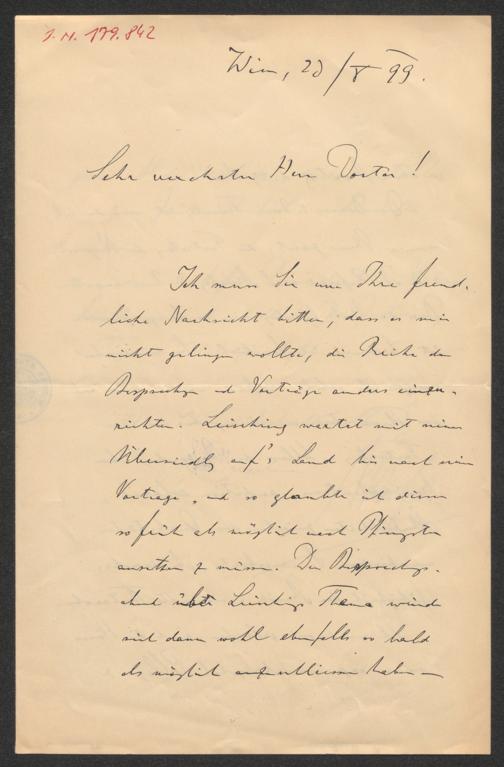 J. N. 179.842
Wien, 23/V 99.
Sehr verehrter Herr Doctor!
Ich muss Sie um Ihre freund-
liche Nachsicht bitten, dass es mir
nicht gelingen wollte, die Reihe der
Besprechgen und Vorträge anders einzu-
richten. Leisching wartet mit seiner
Übersiedlg auf's Land bis nach seinem
Vortrage, und so glaubte ich diesen
so früh als möglich nach Pfingsten
ansetzen z müssen. Der Besprechgs-
abend über Leischings Thema würde
sich dann wohl ebenfalls so bald
als möglich anzuschliessen haben –